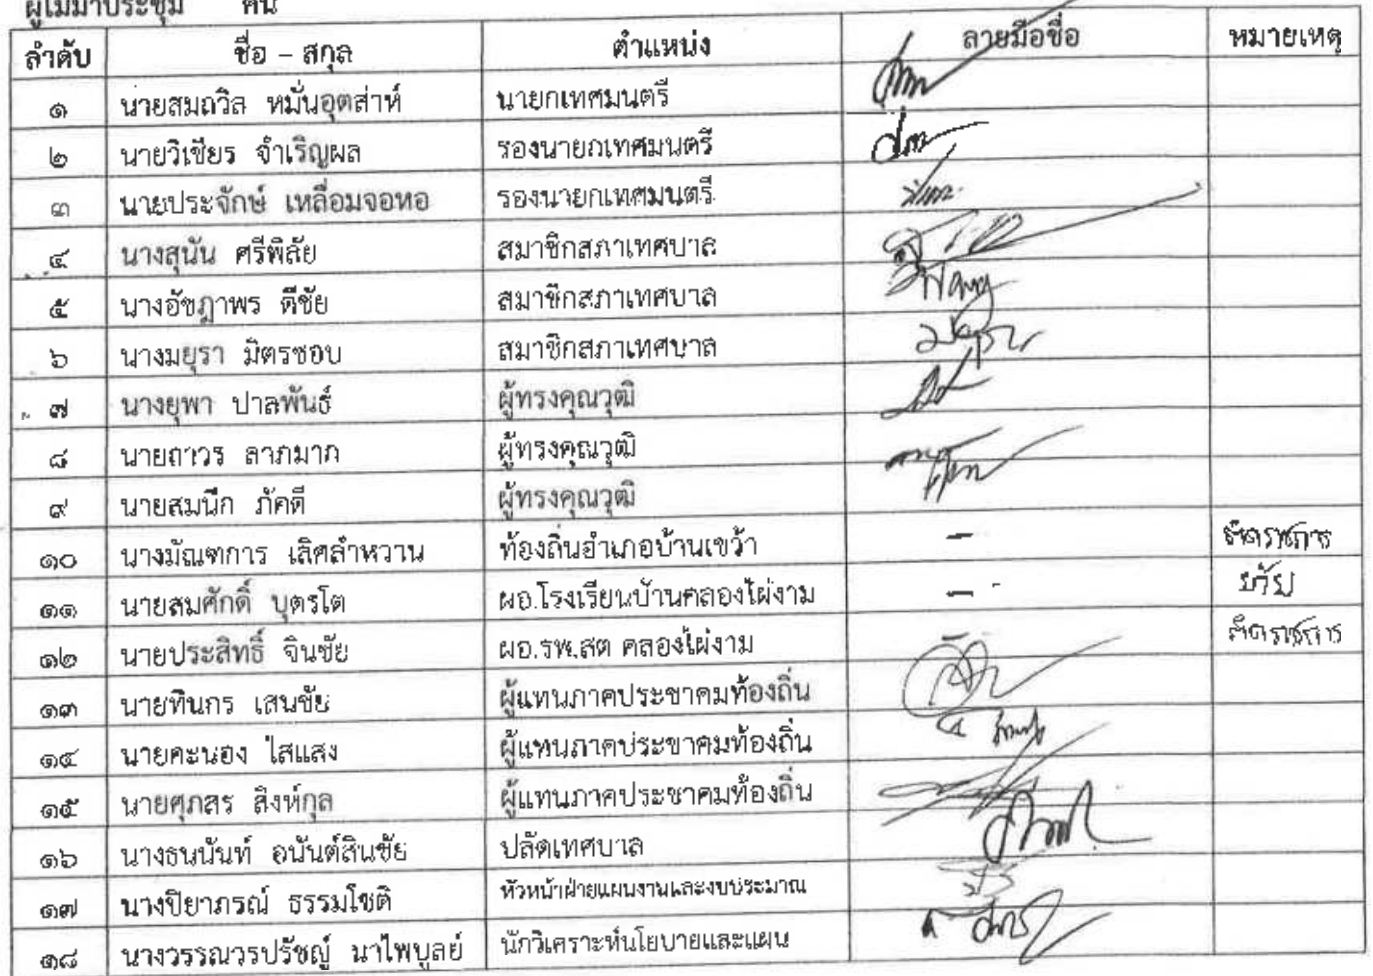 ผู้ไม่มาประชุม คน
ลำดับ ชื่อ – สกุล ตำแหน่ง ลายมือชื่อ หมายเหตุ
๑ นายสมถวิล หมั่นอุตส่าห์ นายกเทศมนตรี
๒ นายวิเชียร จำเริญผล รองนายกเทศมนตรี
๓ นายประจักษ์ เหลื่อมจอหอ รองนายกเทศมนตรี
๔ นางสุนัน ศรีพิลัย สมาชิกสภาเทศบาล
๕ นางอัชฎาพร ดีชัย สมาชิกสภาเทศบาล
๖ นางมยุรา มิตรชอบ สมาชิกสภาเทศบาล มยุรา
๗ นางยุพา ปาลพันธ์ ผู้ทรงคุณวุฒิ
๘ นายถาวร ลาภมาก ผู้ทรงคุณวุฒิ
๙ นายสมนึก ภักดี ผู้ทรงคุณวุฒิ
๑๐ นางมัณฑการ เลิศลำหวาน ท้องถิ่นอำเภอบ้านเขว้า – ติดราชการ
๑๑ นายสมศักดิ์ บุตรโต ผอ.โรงเรียนบ้านคลองไผ่งาม –
๑๒ นายประสิทธิ์ จินชัย ผอ.รพ.สต คลองไผ่งาม ติดราชการ
๑๓ นายทินกร เสนชัย ผู้แทนภาคประชาคมท้องถิ่น
๑๔ นายคะนอง ไสแสง ผู้แทนภาคประชาคมท้องถิ่น
๑๕ นายศุภสร สิงห์กุล ผู้แทนภาคประชาคมท้องถิ่น
๑๖ นางธนนันท์ อนันต์สินชัย ปลัดเทศบาล
๑๗ นางปิยาภรณ์ ธรรมโชติ หัวหน้าฝ่ายแผนงานและงบประมาณ
๑๘ นางวรรณวรปรัชญ์ นาไพบูลย์ นักวิเคราะห์นโยบายและแผน